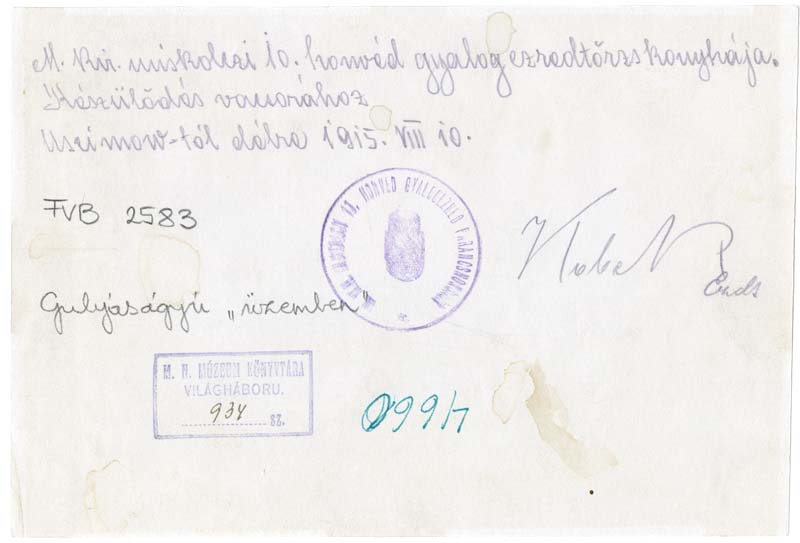 M. kir. miskolczi 10. honvéd gyalog ezredtörzs konyhája.
Készülődés vacsorához
Uscimow-tól délra 1915. VIII 10.
FVB 2583
M. KIR. MISKOLCZI 10. HONVÉD GYALOGEZRED PARANCSNOKSÁG
Gulyáságyú „üzemben"
M. H. MÚZEUM KÖNYVTÁRA
VILÁGHÁBORU.
934 SZ.